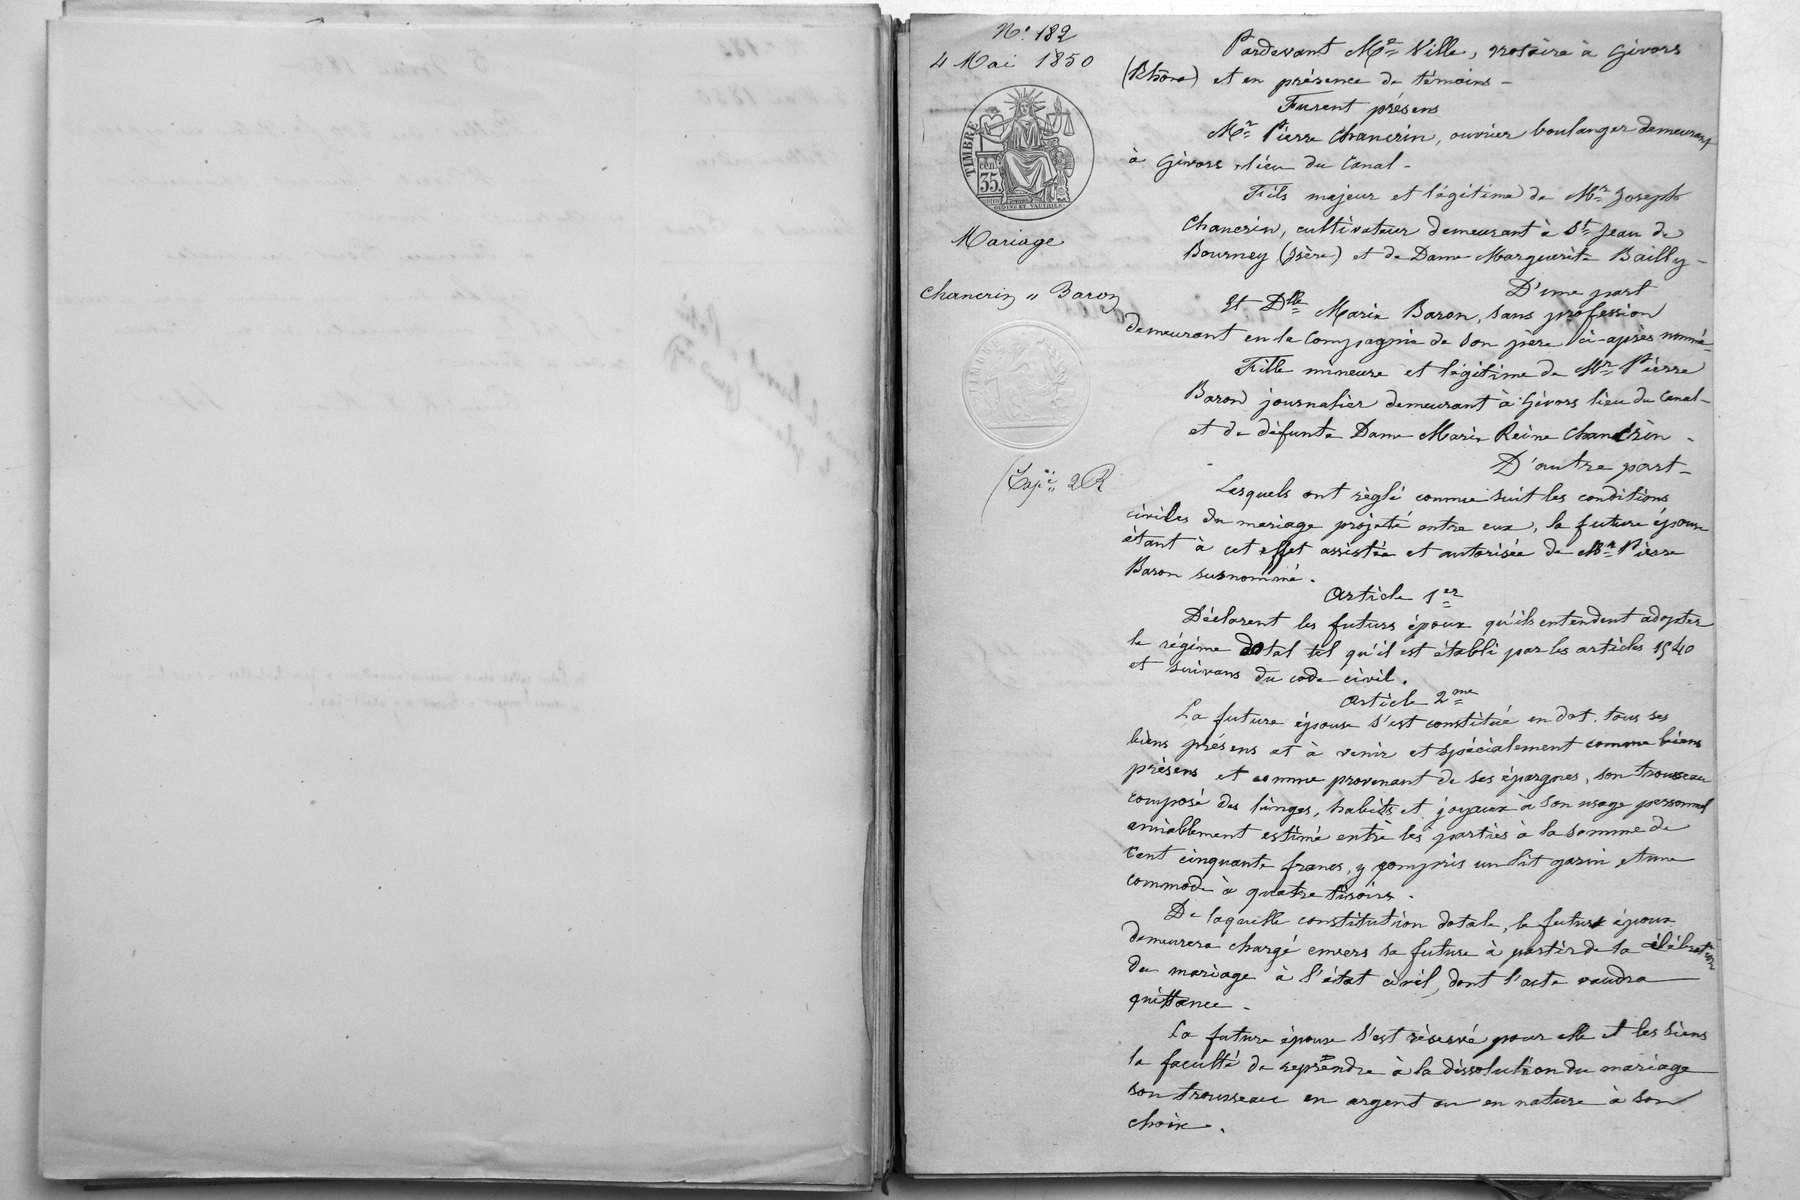 N.º 182
4 Mai 1850
TIMBRE
cen.
35
Mariage
Chancrin " Baron
TIMBRE
Exp.on 2R
Pardevant Me Ville, notaire à Givors
(Rhône) et en présence de témoins -
Furent présens
Mr Pierre Chancrin, ouvrier boulanger demeurant
à Givors, lieu du Canal -
Fils majeur et légitime de Mr Joseph
Chancrin, cultivateur demeurant à St Jean de
Bourney (Isère) et de Dame Marguerite Bailly -
D'une part
Et Dlle Marie Baron, sans profession
demeurant en la Compagnie de son père ci-après nommé -
Fille mineure et légitime de Mr Pierre
Baron journalier demeurant à Givors lieu du Canal -
et de défunte Dame Marie Reine Chancrin -
D'autre part -
Lesquels ont réglé comme suit les conditions
civiles du mariage projeté entre eux, la future épouse
étant à cet effet assistée et autorisée de Mr Pierre
Baron susnommé.
Article 1er
Déclarent les futurs époux qu'ils entendent adopter
le régime dotal tel qu'il est établi par les articles 1540
et suivans du code civil.
Article 2me
La future épouse s'est constitué en dot tous ses
biens présens et à venir et spécialement comme biens
présens et comme provenant de ses épargnes, son trousseau
composé des linges, habits et joyaux à son usage personnel
amiablement estimé entre les parties à la somme de
cent cinquante francs, y compris un lit garni et une
commode à quatre tiroirs.
De laquelle constitution dotale, le futur époux
demeurera chargé envers sa future à partir de la célébration
du mariage à l'état civil, dont l'acte vaudra
quittance -
La future épouse s'est réservé pour elle et les siens
la faculté de reprendre à la dissolution du mariage
son trousseau en argent ou en nature à son
choix.